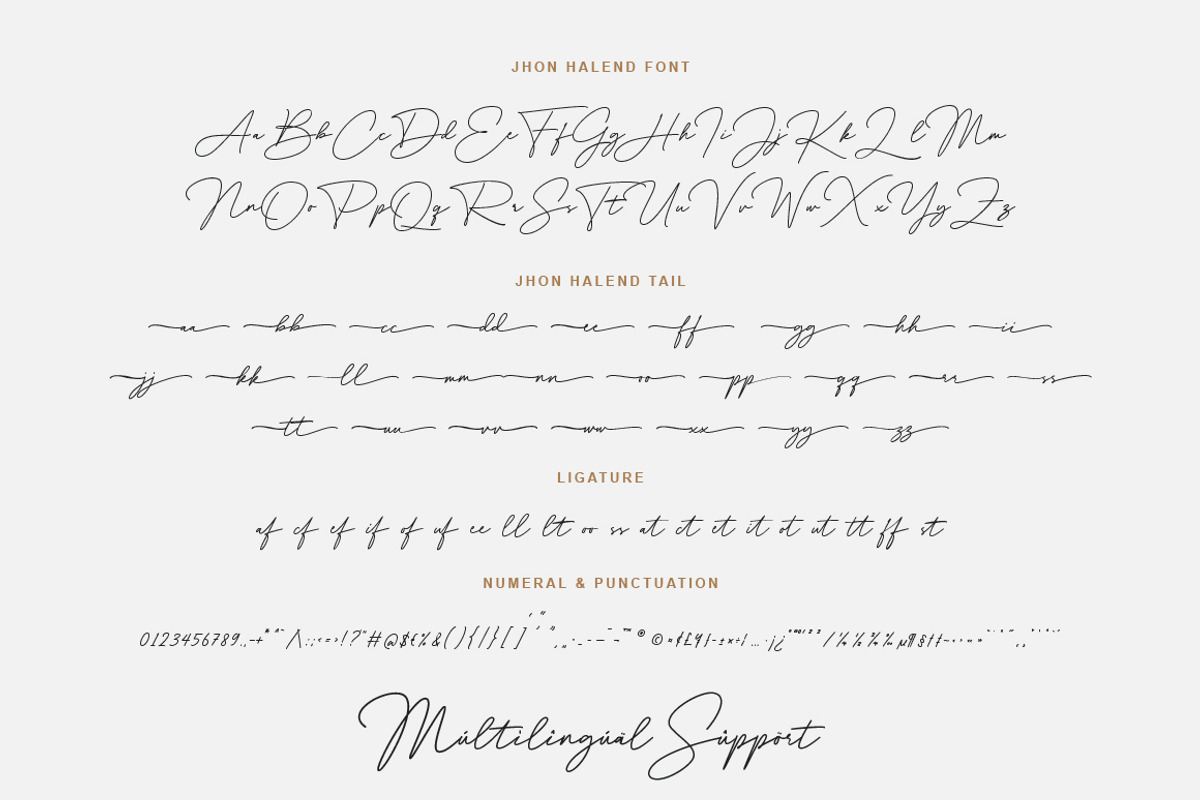 JHON HALEND FONT
Aa Bb Cc Dd Ee Ff Gg Hh Ii Jj Kk Ll Mm
Nn Oo Pp Qq Rr Ss Tt Uu Vv Ww Xx Yy Zz
JHON HALEND TAIL
aa bb cc dd ee ff gg hh ii
jj kk ll mm nn oo pp qq rr ss
tt uu vv ww xx yy zz
LIGATURE
af cf ef if of uf ee ll lt oo ss at ct et it ot ut tt ff st
NUMERAL & PUNCTUATION
0123456789.,-+*^~/\:;<=>!?"#@$€%&(){|}[]
Múltilîngúäl Sûppört